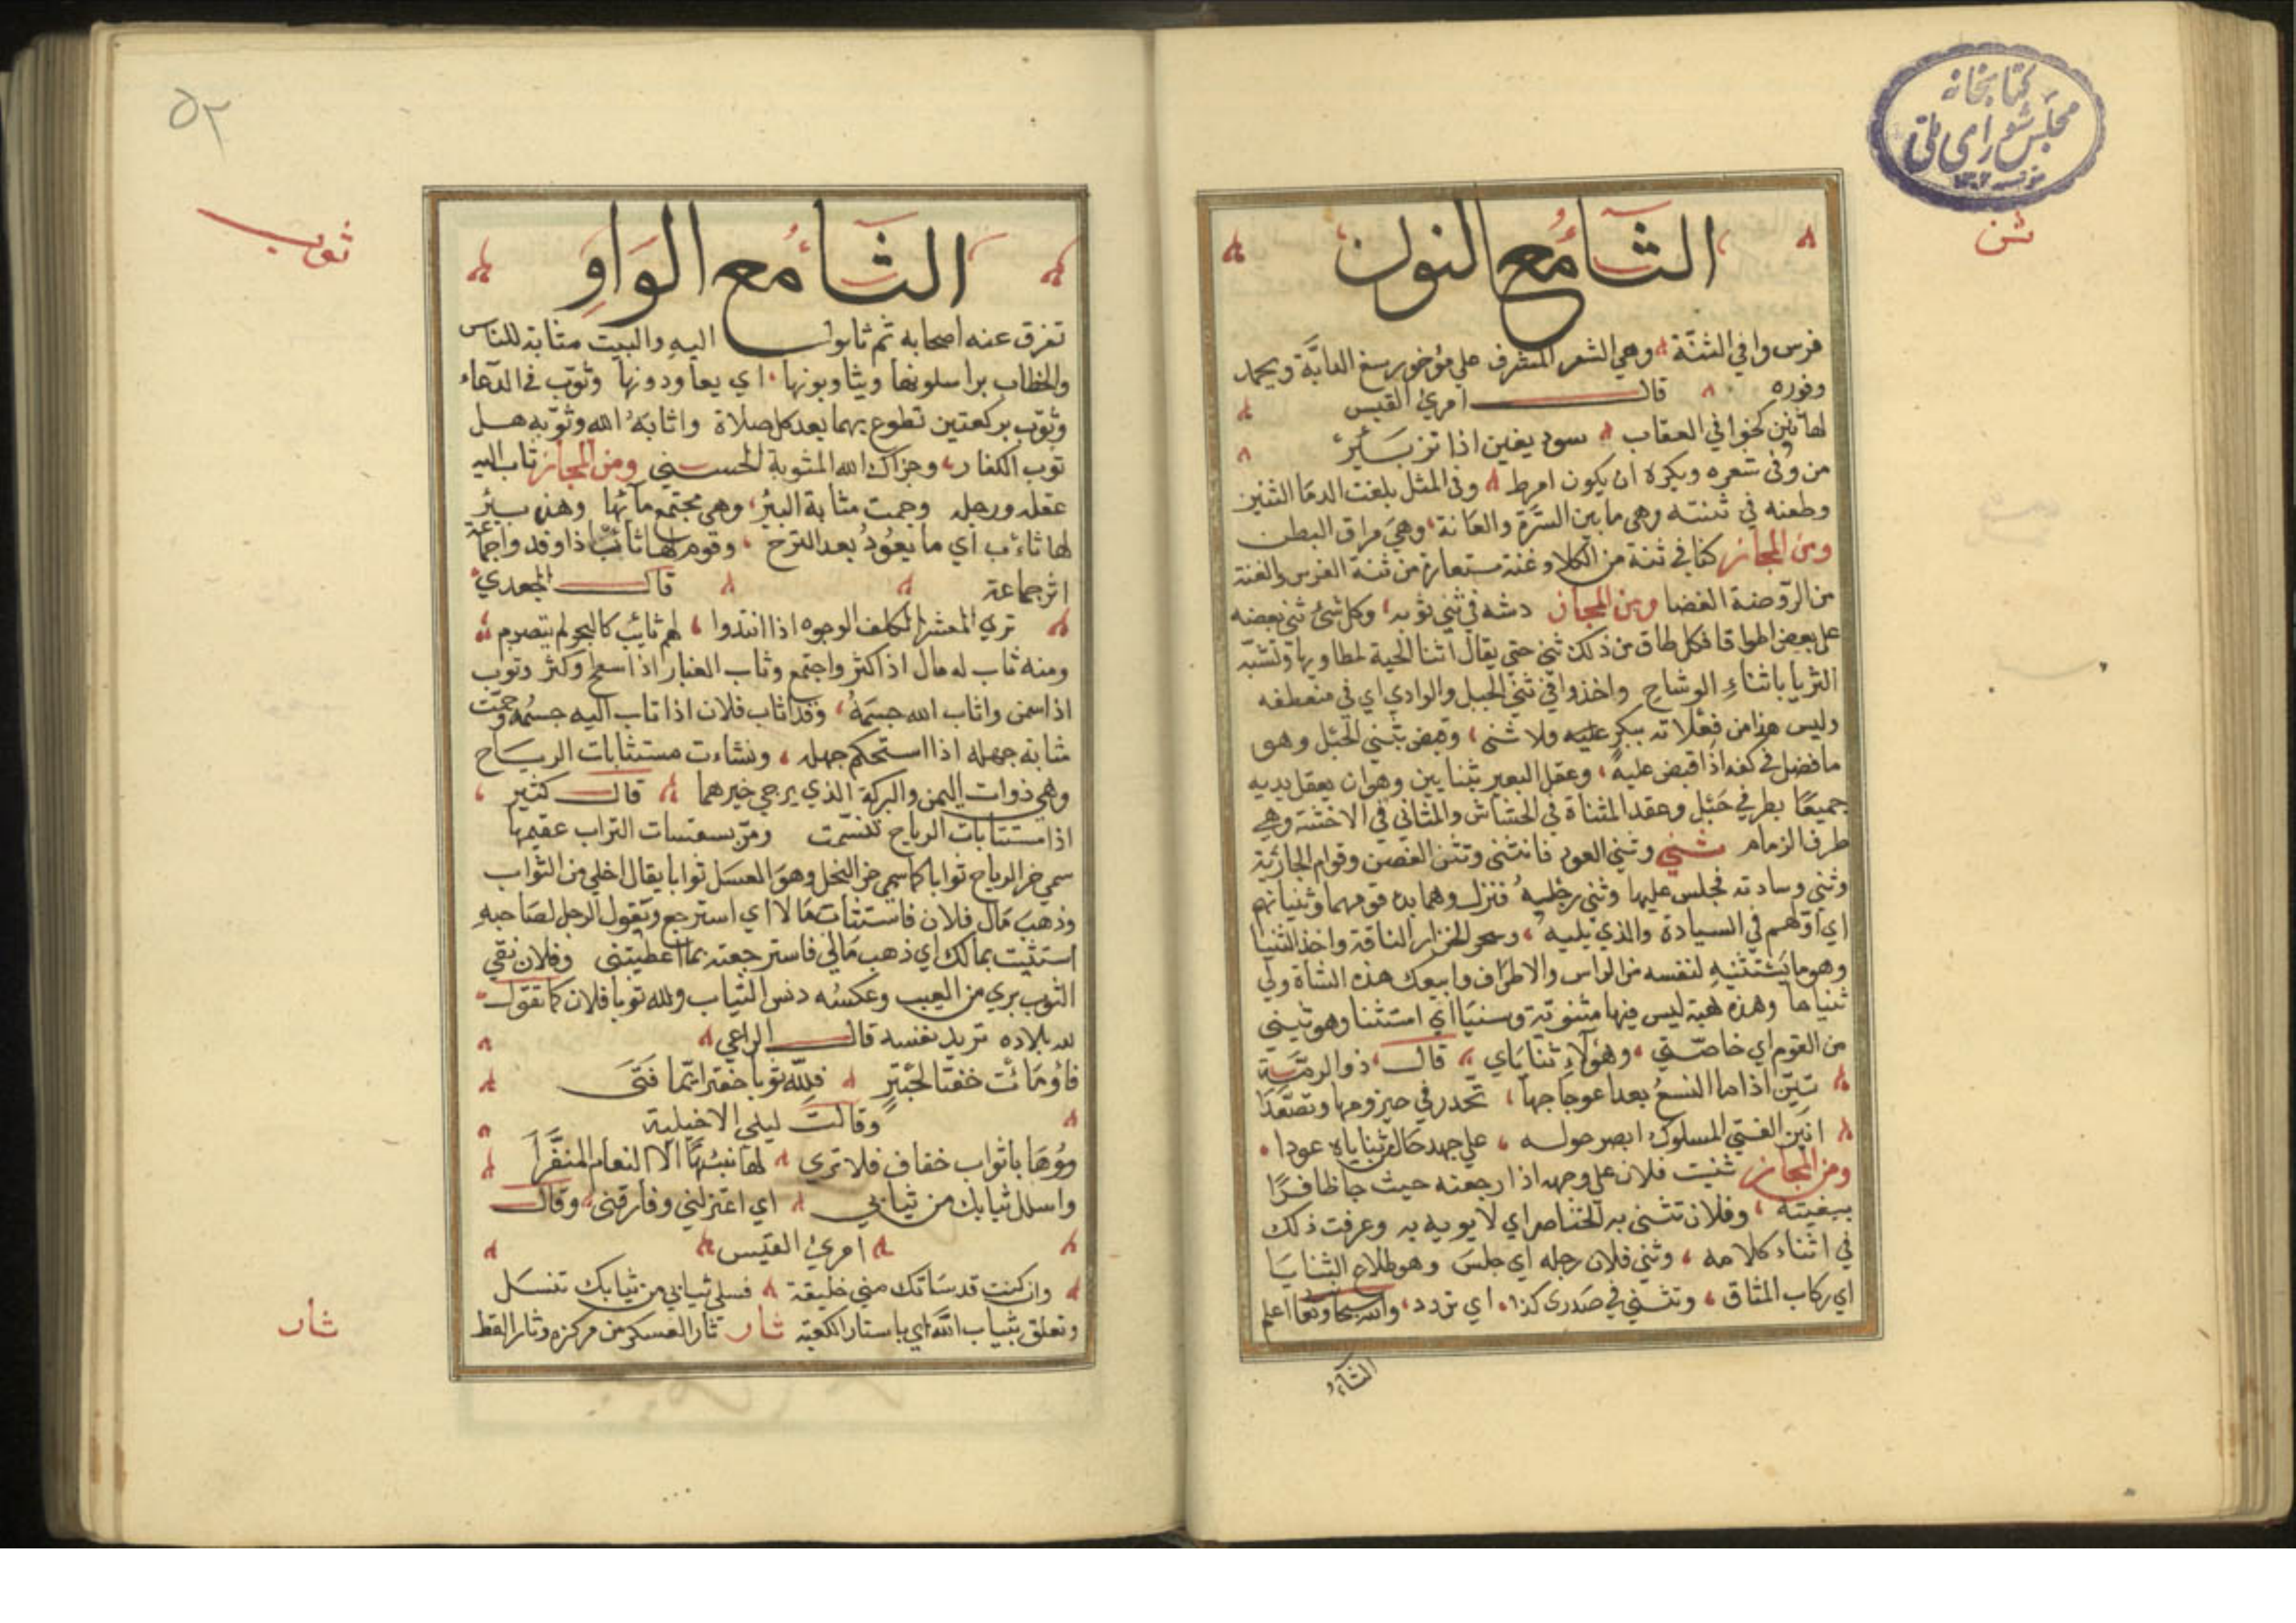 كتابخانه
مجلس شورای ملی
ثنن
الثاء مع النون
فرس وافي الثنّة وهي الشعر المشرف علي مؤخور رسغ الدابَّة ويحمد
وفوره قال امرئ القيس
لها ثنن كخوافي العقاب سود يفين اذا تزبئر
من وفى شعره ويكره ان يكون امرط وفى المثل بلغت الدما الثنن
وطعنه في ثنته وهي ما بين السرّة والعانة وهي مراق البطن
ومن المجاز كنا في ثنة من الكلا وغنة مستعارة من ثنة الفرس والغنة
من الروضة الغضا ومن المجاز دشه في ثني ثوبه وكل شئ ثني بعضه
علي بعض اطواقا فكل طاق من ذلك ثني حتي يقال اثنا الحية لمطاويها وتشبّه
الثريا باثناء الوشاح واخذوا في ثني الجبل والوادي اي في منعطفه
وليس هذا من فعلاته ببكر عليه ولا ثنى وقبض بثني الحبل وهو
ما فضل في كفه اذا قبض عليه وعقل البعير بثنايين وهو ان يعقل يديه
جميعًا بطرفي حَبْل وعقد المثناة في الخشاش والمثاني في الاخشة وهي
طرف الزمام ثني وثني العود فانثنى وتثنى الغصن وقوام الجارية
وثني وسادته فجلس عليها وثني رجليه فنزل وهما بدء قومهما وثنيانهم
اي اوّلهم في السيادة والذي يليه ونحر الجزار الناقة واخذ الثنيا
وهو ما يستثنيهِ لنفسه من الراس والاطراف وابيعك هذه الشاة ولي
ثنياها وهذه هبة ليس فيها مثنويّة وسنيا اي استثنا وهو ثنيتي
من القوم اي خاصّتي وهؤلاءِ ثناياي قال ذو الرمّة
تبيّن اذا ما النسعُ بعد اعوجاجها تحدر في حيزومها وتصعّدا
انين الفتي المسلوك ابصر حوله علي جهد حال من ثناياه عودا
ومن المجاز ثنيت فلان علي وجهه اذا رجعته حيث جا ظافرًا
ببغيته وفلان تثنى به الخناصر اي لا يوبه به وعرفت ذلك
في اثناء كلامه وثني فلان رجله اي جلس وهو طلاع الثنايا
اي ركاب المشاق وتثني في صدرى كذا اي تردد والله سبحانه وتعا اعلم
الثاء
٥٢
ثوب
الثاء مع الواو
تفرق عنه اصحابه ثم ثابوا اليهِ والبيت مثابة للناس
والخطاب يراسلونها ويثاوبونها اي يعاودونها وثوّب في الدعاء
وثوّب بركعتين تطوع بهما بعد كل صلاة واثابهُ الله وثوّبه هل
ثوب الكفار وجزاك الله المثوبة الحسني ومن المجاز ثاب اليه
عقله ورجله وجمت مثابة البئر وهي مجتمع مآئها وهذه بئر
لها ثاءب اي ما يعُودُ بعد النزح وقوم لها ثائب اذا وفدوا جماعة
اثر جماعة قال الجعدي
تري المعشر الكلف الوجوه اذا انتدوا لهم ثائب كالبحر لم يتصرم
ومنه ثاب له مال اذا كثر واجتمع وثاب الغبار اذا اسطع وكثر وثوب
اذا سمن واثاب الله جسمَهُ وقد اثاب فلان اذا ثاب اليه جسمُه وجمّت
مثابة جهله اذا استحكم جهله ونشاءت مستثابات الرياح
وهي ذوات اليمن والبركة الذي يرجي خيرهما قال كثير
اذا مستثابات الرياح تنسّمت ومرّ بسفساف التراب عقيمها
سمي خر الرياح ثوابا كما سمي خر النحل وهو العسل ثوابا يقال احلي من الثواب
وذهب مَال فلان فاستثاب مَالا اي استرجع ويقول الرجل لصاحبهِ
استثبت بمالك اي ذهب مَالي فاسترجعته بما اعطيتني وفلان نقي
الثوب بري من العيب وعكسُه دنس الثياب ولله ثوبا فلان كما تقول
لله بلاده تريد نفسه قال الراعي
فاؤمَاتُ خفتا لحبترٍ فلِلّه ثوبا حبتر ايّما فَتَى
وقالت ليلي الاخيلية
رمَوُهَا باثواب خفاف فلا تري لها شبَهًا الا النعام المنفَّرَا
واسلل ثيابك من ثيابي اي اعتزلني وفارقني وقال
امرئ القيس
وان كنت قد سَاتك مني خليقة فسلي ثيابي من ثيابك تنسل
وتعلق بثياب الله اي باستار الكعبة ثار ثار العسكر من مركزه وثار القط
ثار